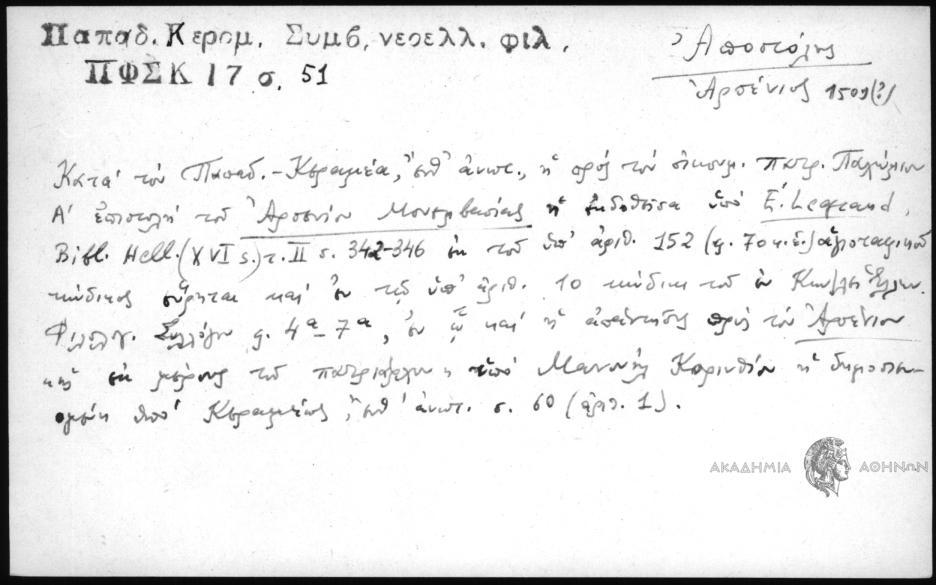 Παπαδ. Κεραμ. Συμβ. νεοελλ. φιλ.
ΠΦΣΚ 17 σ. 51
Ἀποστόλης
Ἀρσένιος 1509(?)
Κατὰ τὸν Παπαδ.-Κεραμέα, ἔνθ' ἀνωτ., ἡ πρὸς τὸν οἰκουμ. πατρ. Παχώμιον
Α' ἐπιστολὴ τοῦ Ἀρσενίου Μονεμβασίας ἡ ἐκδοθεῖσα ὑπὸ E. Legrand,
Bibl. Hell. (XVI s.) τ. II σ. 342-346 ἐκ τοῦ ὑπ' ἀριθ. 152 (φ. 70 κ.ἑ.) ἁγιοταφικοῦ
κώδικος εὕρηται καὶ ἐν τῷ ὑπ' ἀριθ. 10 κώδικι τοῦ ἐν Κων/λει Ἑλλην.
Φιλολογ. Συλλόγου φ. 4α-7α, ἐν ᾧ καὶ ἡ ἀπάντησις πρὸς τὸν Ἀρσένιον
ἐκ μέρους τοῦ πατριάρχου ὑπὸ Μανουὴλ Κορινθίου ἡ δημοσιευ-
ομένη ὑπὸ Κεραμέως, ἔνθ' ἀνωτ. σ. 60 (ἀριθ. 1).
ΑΚΑΔΗΜΙΑ ΑΘΗΝΩΝ